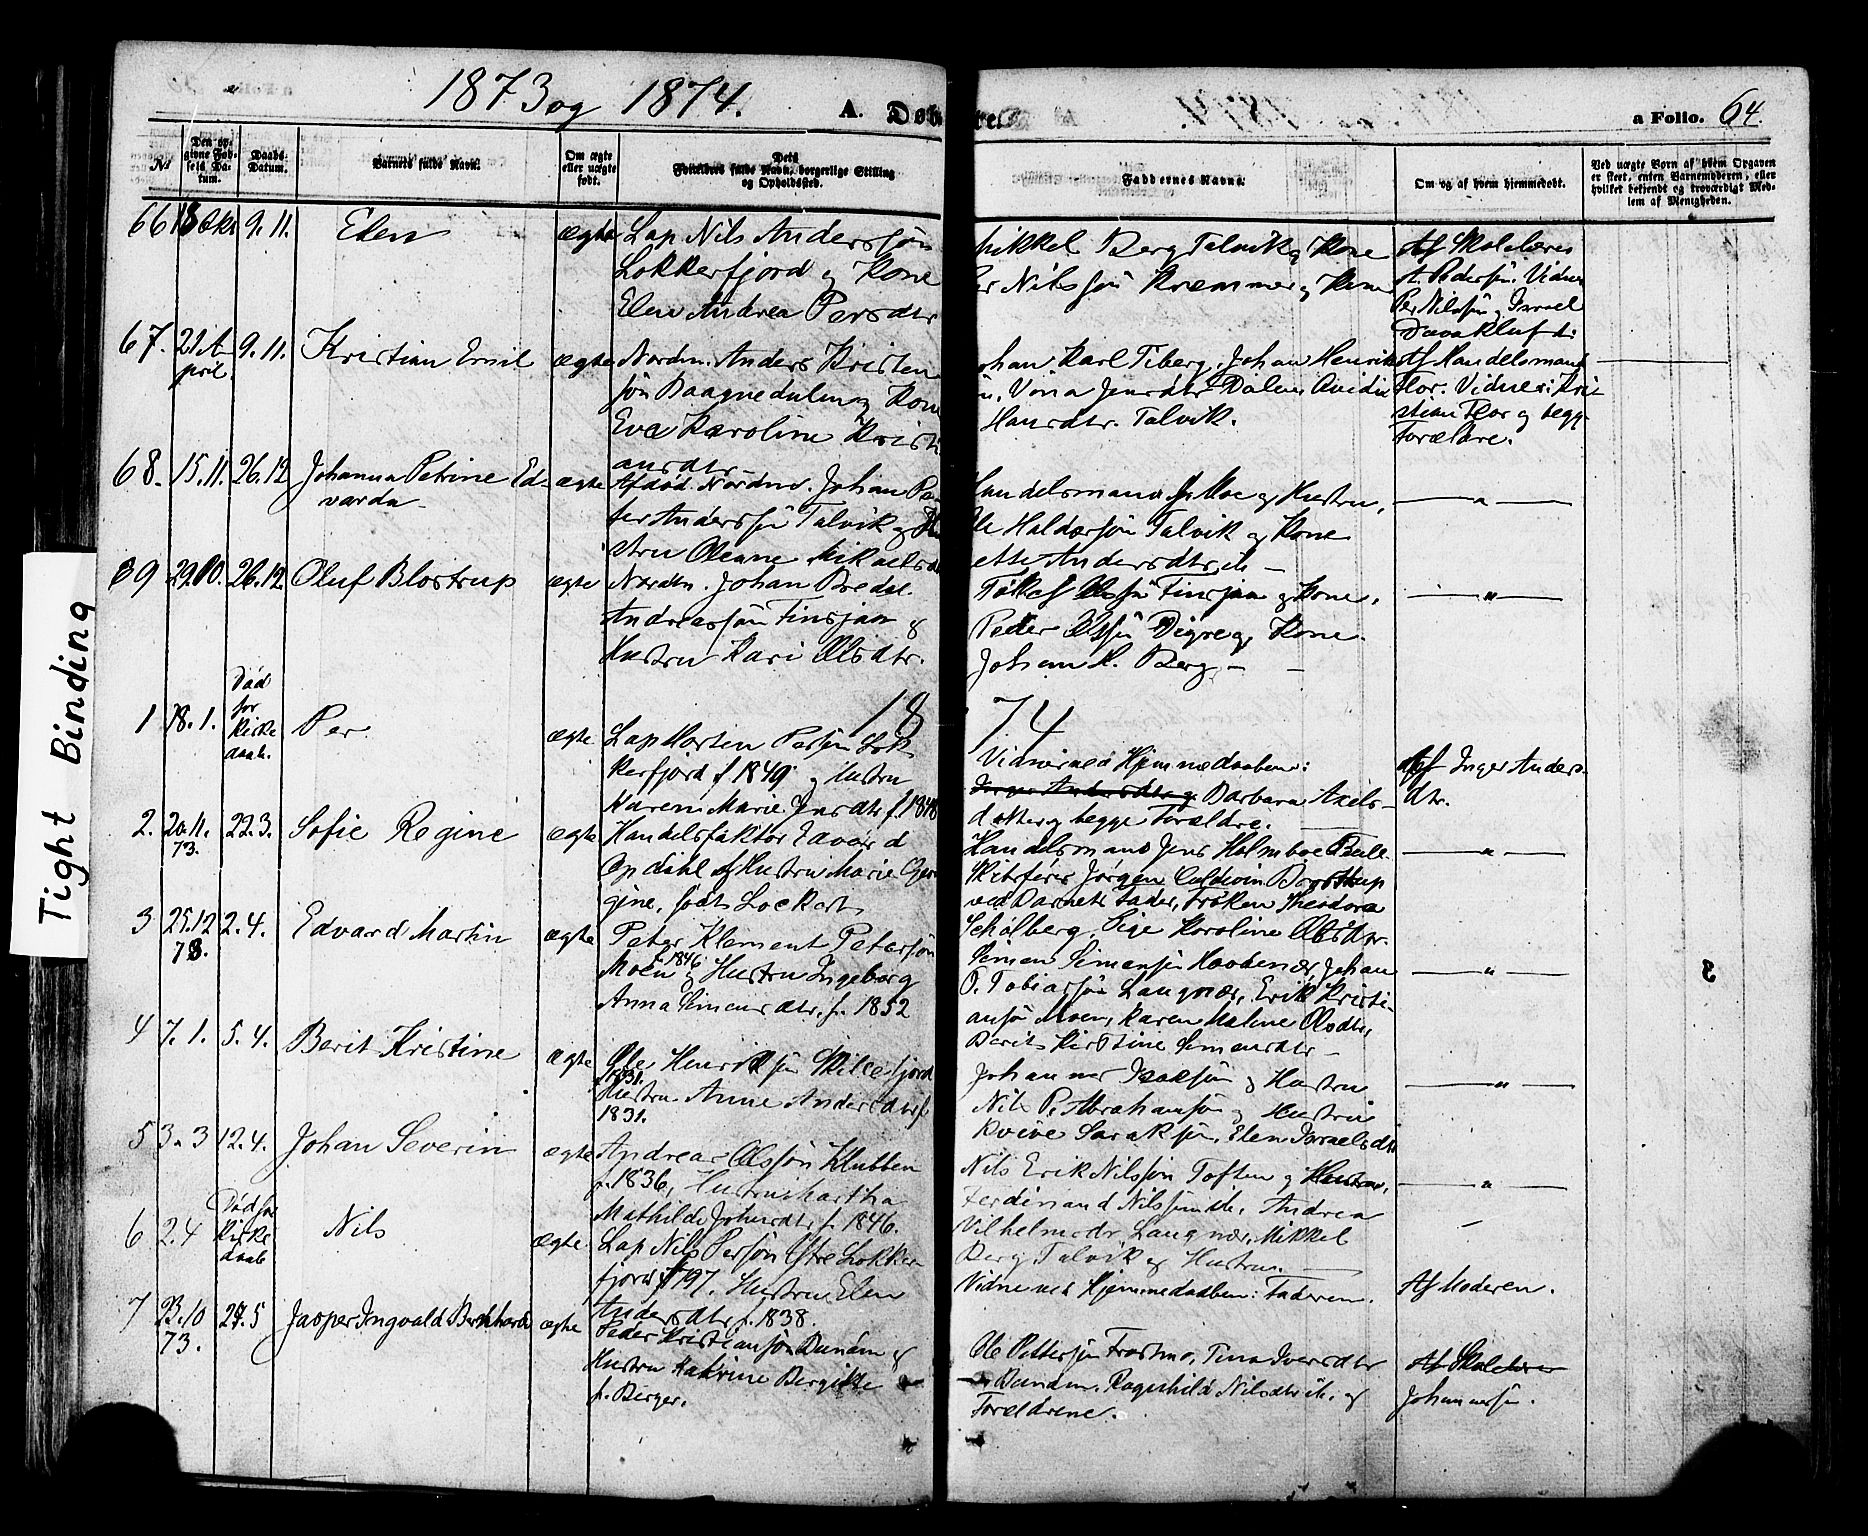 1873 og 1874.
A. Døbte.
a Folio. 64.
Tight Binding
No
Den opgivne Fødsels Datum.
Daabs-Datum.
Barnets fulde Navn.
Om ægte eller uægte født.
Dets Forældres fulde Navn, borgerlige Stilling og Opholdssted.
Faddernes Navne.
Om og af hvem hjemmedøbt.
Ved uægte Børn af hvem Opgaven er skeet, enten Barnemoderen, eller hvilket bekjendt og troværdigt Medlem af Menigheden.
66 18 Okt 9.11. Elen ægte Lap Nils Anderssøn
Lokkerfjord og Kone
Elen Andrea Persdtr
Mikkel Berg Talvik og Kone
Per Nilssøn Kræmmer og Kone
Af Skolelærer
A. Pedersøn. Vidner
Per Nilssøn og Israel
67. 21 April 9.11. Kristian Emil ægte Nordm. Anders Kristen
søn Baagnedalen og Kone
Eva Karoline Kristi
ansdtr
Johan Karl Tiberg, Johan Henrik
Hansdtr. Talvik.
Af Handelsmand
Flor. Vidner: Kri-
stian Flor og begge
Forældre.
68. 15.11. 26.12 Johanna Petrine Ed-
varda
ægte Afdød Nordm. Johan Pe
ter Anderssøn Talvik og Hu
stru Oleane Mikaelsdtr
Handelsmand J. Moe og Hustru,
Ole Haldorsøn Talvik og Kone
ette Andersdtr ib.
— " —
69 29.10. 26.12 Oluf Blostrup ægte Nordm. Johan Bredal
Andreassøn Finsjaa og
Hustru Kari Olsdtr.
Tollef Olssøn Finsjaa og Kone,
Peder Olssøn Digre og Kone
Johan H. Berg —
— " —
1874
1 18.1. Død før Kirkedaab. Per ægte Lap Morten Persøn Lok
kerfjord f 1849 og Hustru
Karen Marie Jnsdtr f. 1848
Vidner ved Hjemmedaaben:
Barbara Axels-
datter og begge Forældre.
Af Inger Anders-
dtr.
2. 20.11. 73. 22.3. Sofie Regine ægte Handelsfaktor Edvard
Opdahl og Hustru Marie Geor
gine, født Lockert
Handelsmand Jens Holmboe
Skibsfører Jørgen Caldwin Bostrup
ved Barnets Fader, Frøken Theodora
Schølberg, Sige Karoline Olsdtr.
— " —
3 25.12 73. 2.4. Edvard Martin ægte Peter Klement Petersøn
Moen f. 1846 og Hustru Ingeborg
Anna Simensdtr. f. 1852
Simen Simensøn Kaabenær, Johan
O. Tobiassøn Langnær, Erik Kristi-
ansøn Moen, Karen Maline Olsdtr,
Berit Kirstine Simensdtr —
— " —
4 7.1. 5.4. Berit Kristine ægte Ole Henriksøn Skillefjord
f. 1831. Hustru Anne Andersdtr f.
1831.
Johannes Isaksøn og Hustru
Nils P. Abrahamsøn og Hustru
Kvive Saraksøn, Elen Israelsdtr
— " —
5 3.3 12.4. Johan Severin ægte Andreas Olssøn Klubben
f. 1836, Hustru Martha
Mathilde Johnsdtr, f. 1846.
Nils Erik Nilssøn Toften og Hustru,
Ferdinand Nilssøn ib. Andrea
Vilhelmsdtr, Langnær, Mikkel
Berg Talvik og Hustru.
— " —
6 2.4 Død før Kirkedaab Nils ægte. Lap Nils Persøn Ytre Lokker
fjord Hustru Elen
Andersdtr, f. 1838.
Vidne ved Hjemmedaaben: Faderen.
Af Moderen.
7 23.10 73. 27.5 Jasper Ingvald Bernhard ægte Peder Kristiansøn Danam og
Hustru Katrine Bergitte
f. Berger.
Ole Pettersøn Frostmo, Tina Iversdtr
Danam, Ragnhild Nilsdtr ib. og
Forældrene.
Af Skolelærer
Johannessøn.